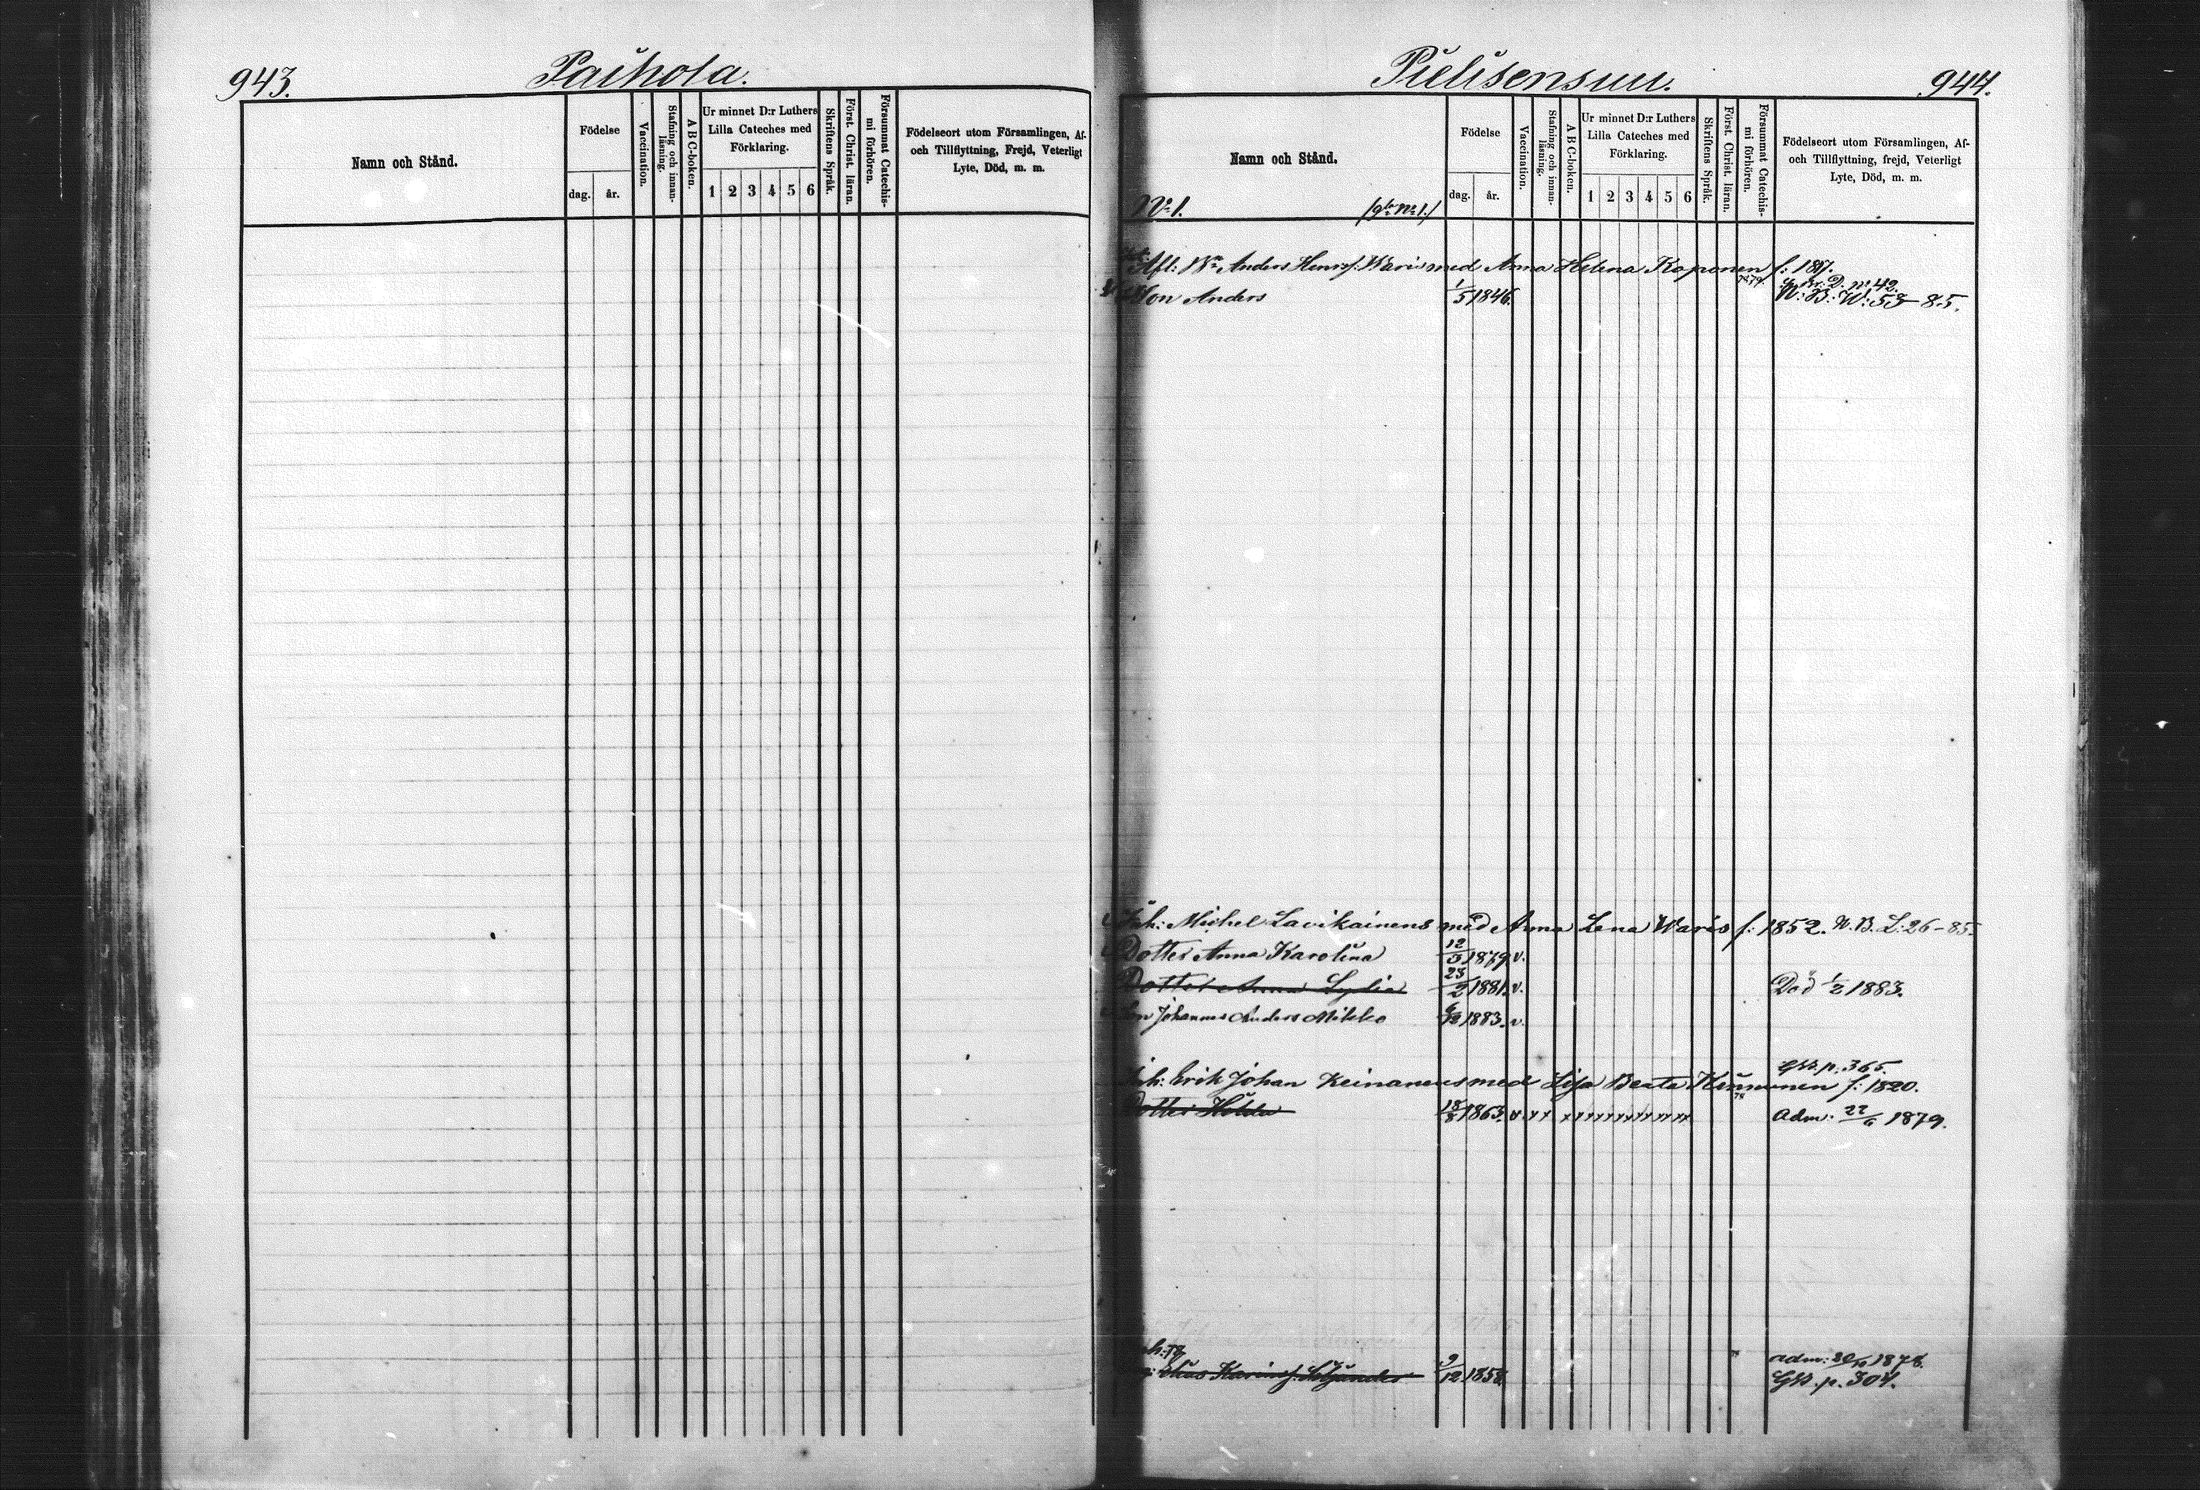 943. Paihola.
Namn och Stånd.
Födelse
dag. år.
Vaccination.
Stafning och innan-
läsning.
A B C-boken.
Ur minnet D:r Luthers
Lilla Cateches med
Förklaring.
1 2 3 4 5 6
Skriftens Språk.
Först. Christ. läran.
Försummat Catechis-
mi förhören.
Födelseort utom Församlingen, Af-
och Tillflyttning, Frejd, Veterligt
Lyte, Död, m. m.
Pielisensuu. 944.
Namn och Stånd.
Nº 1.
Födelse
dag. år.
Vaccination.
Stafning och innan-
läsning.
A B C-boken.
Ur minnet D:r Luthers
Lilla Cateches med
Förklaring.
1 2 3 4 5 6
Skriftens Språk.
Först. Christ. läran.
Försummat Catechis-
mi förhören.
Födelseort utom Församlingen, Af-
och Tillflyttning, frejd, Veterligt
Lyte, Död, m. m.
Afl: Anders Henr:s. Waris med Anna Helena Kaponen f: 1817.
Son Anders 1/5 1846. N: B: W: 53-85.
Inh: Michel Lavikainens med Anna Lena Waris f: 1852. N. B. L: 26-85.
Dotter Anna Karolina 12/5 1879 v.
Dotter Anna Lydia 23/2 1881. v. Död 1/2 1883.
Son Johannes Anders Mikko 6/12 1883. v.
p. 365.
Inh: Erik Johan Keinanens med Lisa Beata Kinnunen f: 1820.
Dotter Hilda 18/8 1863. v x x x x x x x x x x x adm: 22/6 1879.
adm: 20/10 1878.
Siljander 9/12 1858. p. 304.